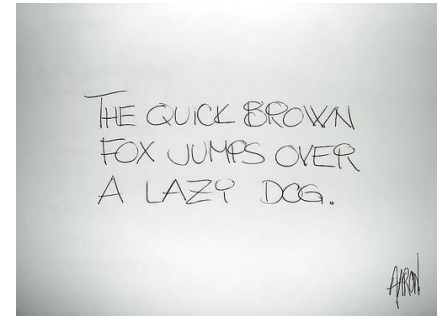 THE QUICK BROWN
FOX JUMPS OVER
A LAZY DOG.
AARON